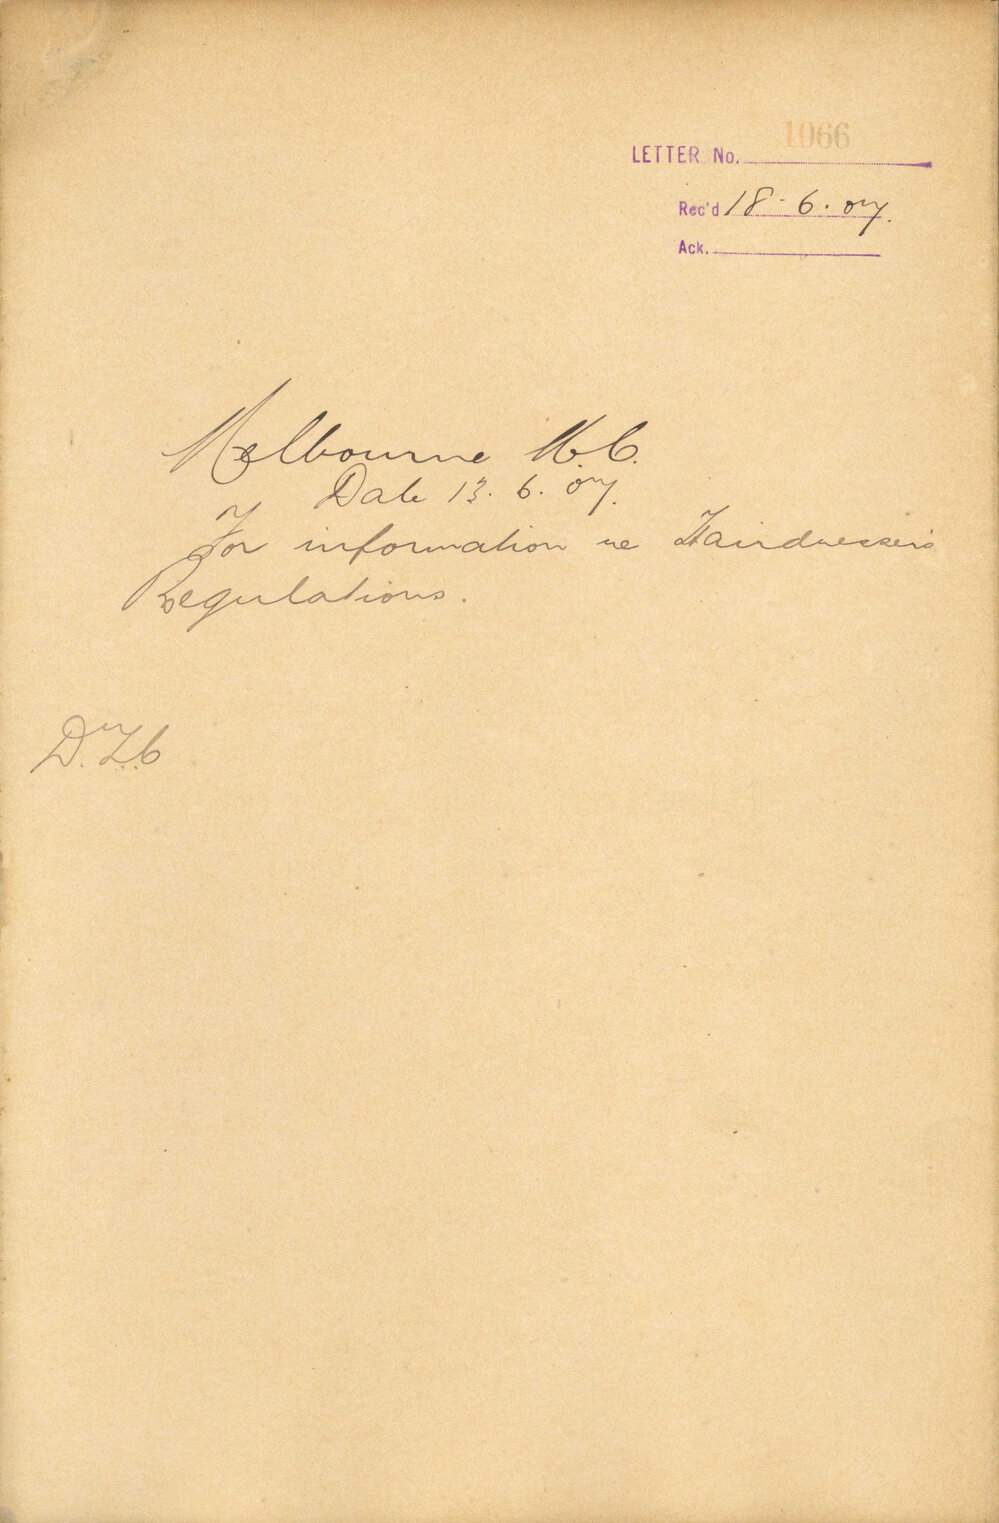 1066
LETTER No.
Rec'd 18-6.07.
Ack.
Melbourne M.C.
Date 13.6.07.
For information re Hairdressers
Regulations.